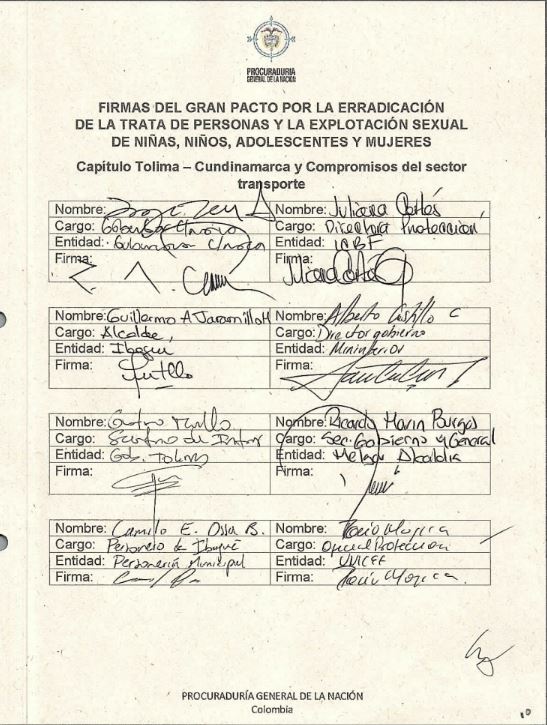 PROCURADURIA
GENERAL DE LA NACION
FIRMAS DEL GRAN PACTO POR LA ERRADICACIÓN
DE LA TRATA DE PERSONAS Y LA EXPLOTACIÓN SEXUAL
DE NIÑAS, NIÑOS, ADOLESCENTES Y MUJERES
Capítulo Tolima – Cundinamarca y Compromisos del sector
transporte
Nombre: Jorge Nombre: Juliana Cortés
Cargo: Cargo: Directora Protección
Entidad: Entidad: ICBF
Firma: Firma: Juliana Cortés
Nombre: Guillermo A Jaramillo M Nombre: Alberto Castillo C
Cargo: Alcalde, Cargo: Director gobierno
Entidad: Ibagué Entidad: Mininterior
Firma: Firma:
Nombre: Nombre: Ricardo Marin Burgos
Cargo: Cargo: Sec. Gobierno y General
Entidad: Gob. Tolima Entidad: Melgar Alcaldia
Firma: Firma:
Nombre: Camilo E. Ossa B. Nombre: Rocio Mojica
Cargo: Personero de Ibagué Cargo: Oficial Protección
Entidad: Personería Municipal Entidad: UNICEF
Firma: Firma: Rocio Mojica.
PROCURADURÍA GENERAL DE LA NACIÓN
Colombia